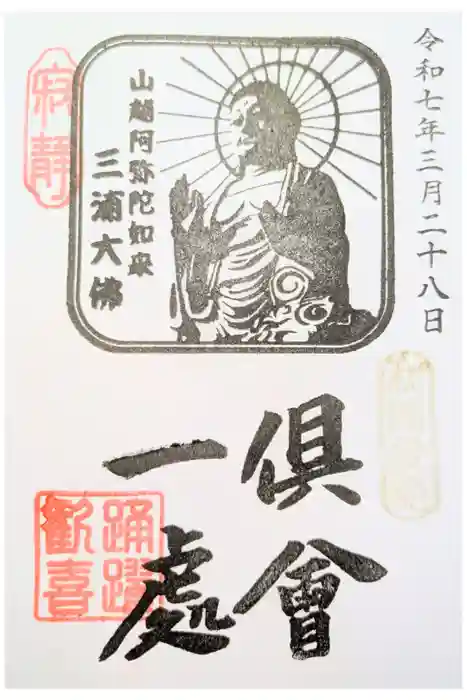 令和七年三月二十八日
山越阿弥陀如来
三浦大佛
寂静
倶會
一處
踊躍
歓喜